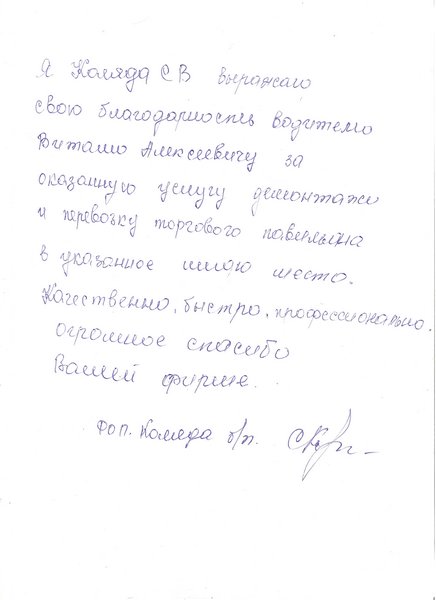 Я Коляда С В выражаю
свою благодарность водителю
Виталию Алексеевичу за
оказанную услугу демонтажи
и перевозку торгового павильона
в указанное мною место.
Качественно, быстро, профессионально.
огромное спасибо
Вашей фирме.
Фоп. Коляда